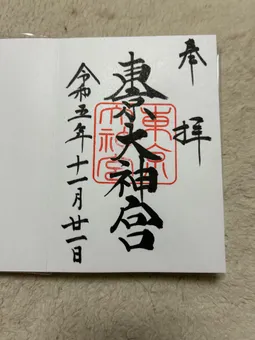 奉拝
東京大神宮
令和五年十一月廿一日
東京大神宮